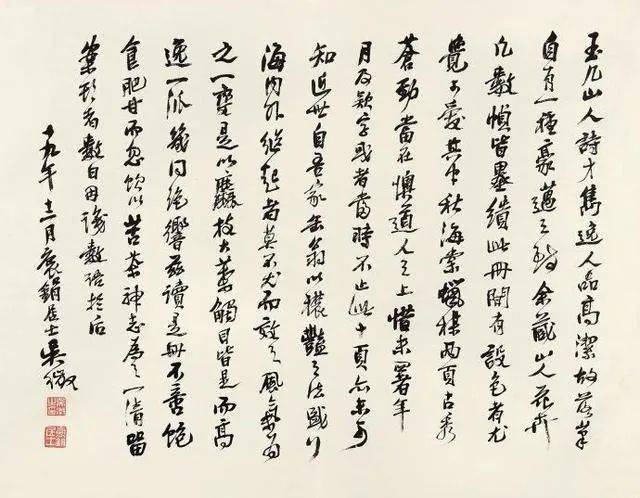 玉几山人詩才雋逸人品高潔故落筆
自有一種豪邁之勢余藏山人花卉
凡數幀皆墨繪此冊間有設色者尤
覺可愛其中秋海棠蠟梅兩頁古秀
蒼勁當在懊道人之上惜未署年
月及款字或者當時不止此十頁亦未可
知近世自吾家缶翁以穠豔之法盛行
海内外繼起者莫不尤而效之風氣為
之一變是以麤枝大葉觸目皆是而高
逸一派幾同絕響茲讀是冊不啻飽
食肥甘而忽飲以苦茶神志為之一清留
案頭者數日因識數語於后
十九年十二月袌鋗居士吳徵